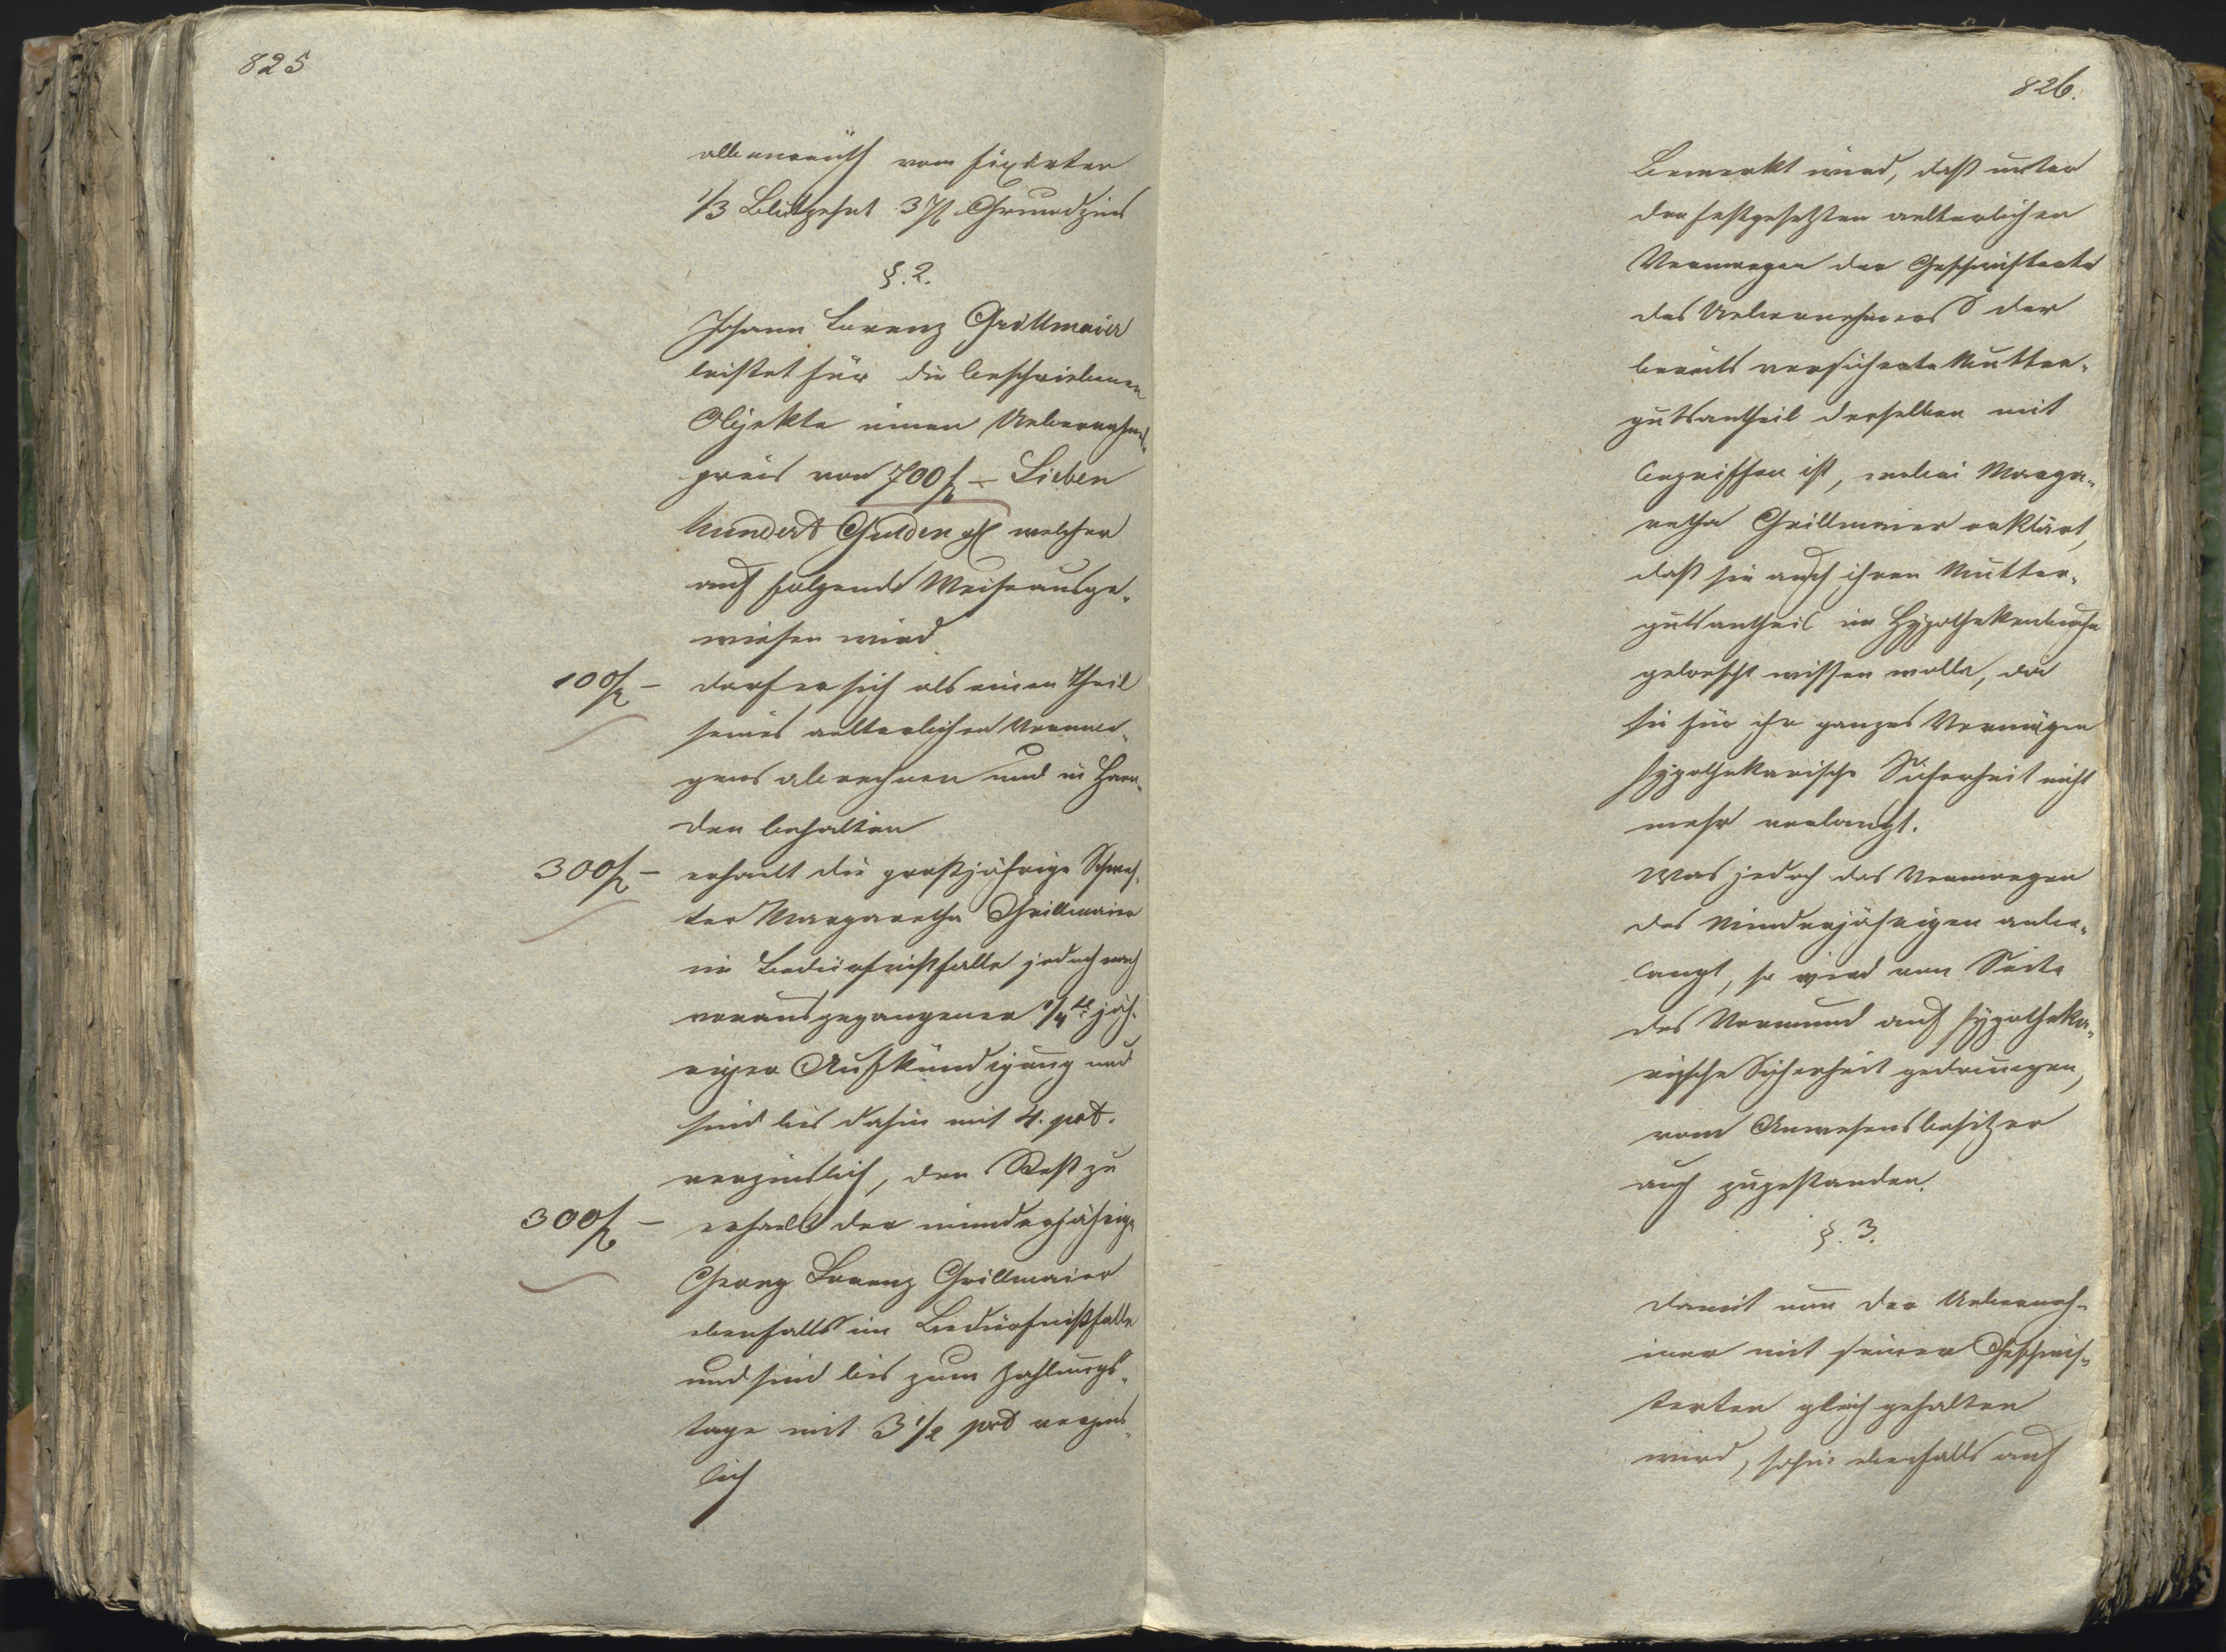 825
albenreuth vom fixirten
1/3 Blutzehnt 3 kr Grundzins
§. 2.
Johann Lorenz Grillmaier
leistet für die beschriebenen
Objekte einen Uebernahms-
preis von 700 f – Sieben
hundert Gulden welcher
auf folgende Weise ausge-
wiesen wird
100 f – darf er sich als einen Theil
seines aelterlichen Vermoe-
gens abrechnen und in Haen-
den behalten
300 f – erhaelt die großjährige Schwes-
ter Margaretha Grillmaier
im Bedürfnißfalle jedoch nach
vorausgegangener 1/4tl jäh-
riger Aufkündigung und
sind bis dahin mit 4. pct.
verzinslich, den Rest zu
300 f – erhaelt der minderjährige
Georg Lorenz Grillmaier
ebenfalls im Bedürfnißfalle
und sind bis zum Zahlungs-
tage mit 3 1/2 pct verzins-
lich
826.
Bemerkt wird, daß unter
den festgesetzten aelterlichen
Vermoegen der Geschwisterte
des Uebernehmers der
bereits versicherte Mutter-
gutsantheil derselben mit
begriffen ist, wobei Marga-
retha Grillmaier erklärt,
daß sie auch ihren Mutter-
gutsantheil im Hypothekenbuche
geloescht wissen wolle, da
sie für ihr ganzes Vermögen
hypothekarische Sicherheit nicht
mehr verlangt.
Was jedoch das Vermoegen
des Minderjährigen anbe-
langt, so wird von Seite
des Vormund auf hypotheka-
rische Sicherheit gedrungen,
vom Anwesensbesitzer
auch zugestanden.
§. 3.
Damit nun der Ueberneh-
mer mit seinen Geschwis-
terten gleich gehalten
wird, sohin ebenfalls auf